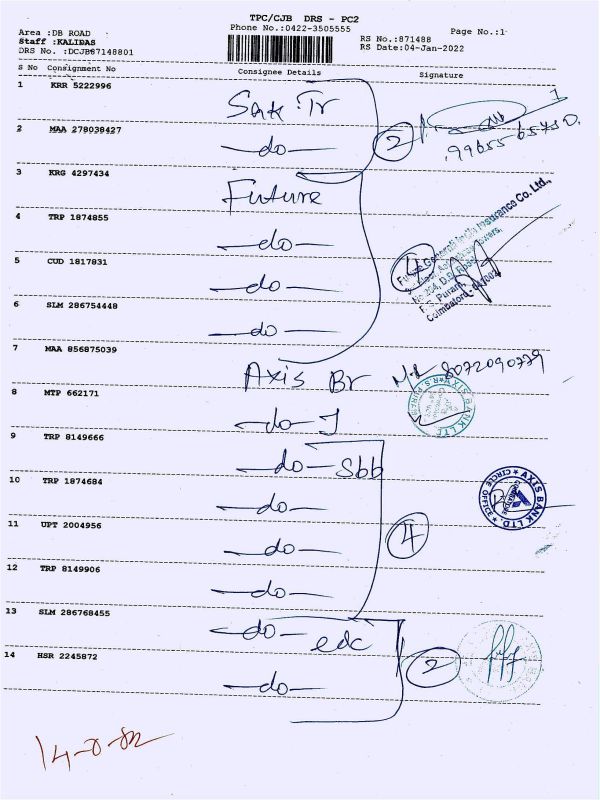 TPC/CJB DRS - PC2
Phone No.:0422-3505555
Page No.:1
Area :DB ROAD
Staff :KALIDAS
DRS No. :DCJB87148801
RS No.:871488
RS Date:04-Jan-2022
S No Consignment No Consignee Details Signature
1 KRR 5222996
2 MAA 278038427 -do-
3 KRG 4297434 Future
4 TRP 1874855 -do-
5 CUD 1817831 -do-
6 SLM 286754448 -do-
7 MAA 856875039 Axis Br
8072090779
8 MTP 662171 -do- 1
9 TRP 8149666 -do- Sbb
10 TRP 1874684 -do-
11 UPT 2004956 -do-
12 TRP 8149906 -do-
13 SLM 286768455 -do- edc
14 HSR 2245872 -do-
2
4
4
2
Insurance Co. Ltd.,
R.S. Puram,
Coimbatore - 641002
AXIS BANK LTD.
CIRCLE OFFICE